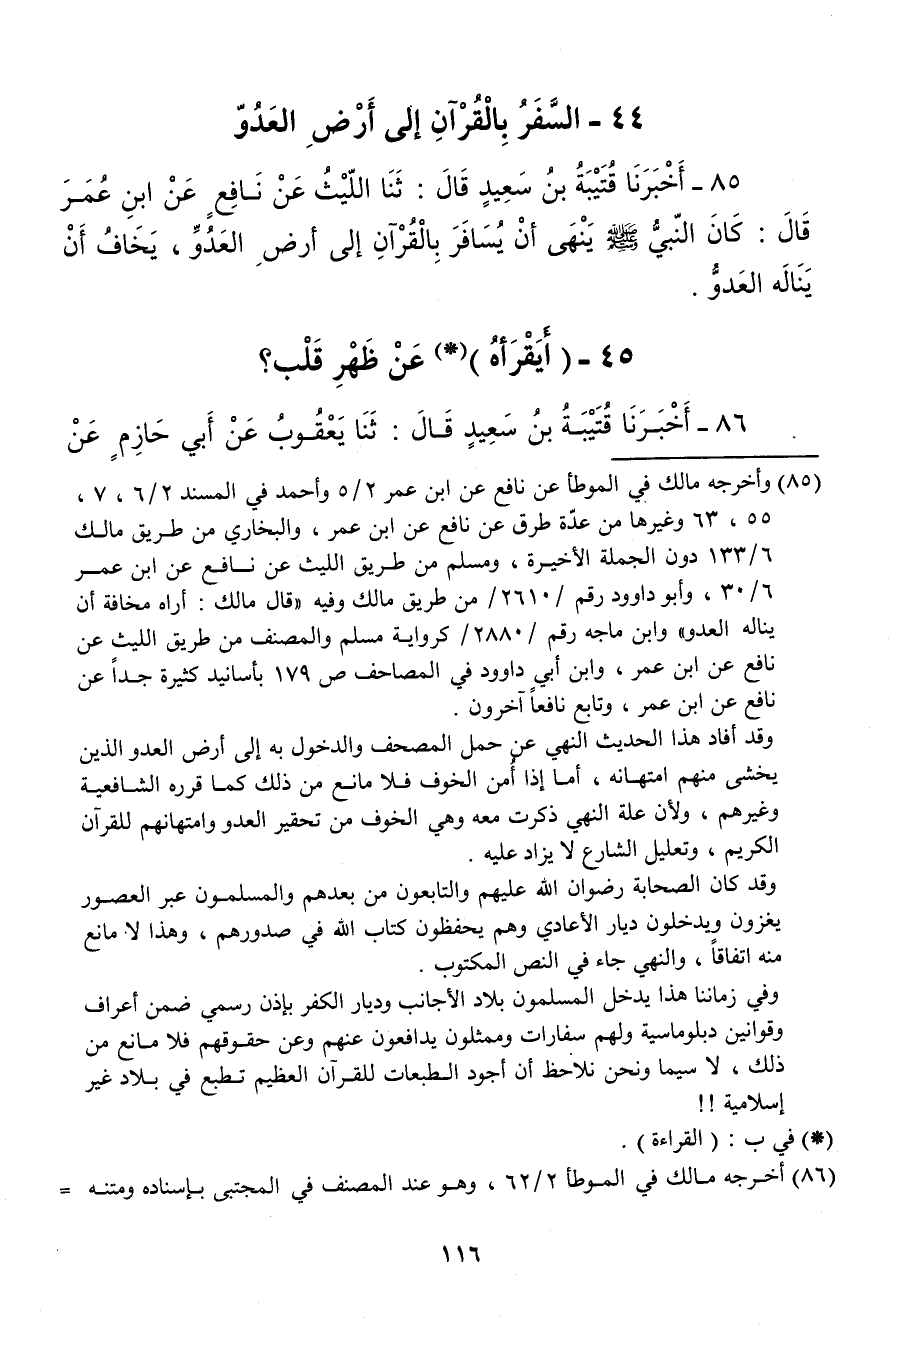 ٤٤ - السَّفَرُ بِالْقُرْآنِ إلى أَرْضِ العَدُوّ
٨٥ - أَخْبَرَنَا قُتَيْبَةُ بنُ سَعِيدٍ قَالَ : ثَنَا اللّيْثُ عَنْ نَافِعٍ عَنْ ابنِ عُمَرَ
قَالَ : كَانَ النّبيُّ ﷺ يَنْهَى أنْ يُسَافَرَ بِالْقُرْآنِ إلى أرضِ العَدُوِّ ، يَخَافُ أنْ
يَنَالَه العَدوُّ .
٤٥ - ( أَيَقْرَأهُ )(*) عَنْ ظَهْرِ قَلْب؟
٨٦ - أَخْبَرَنَا قُتَيْبَةُ بنُ سَعِيدٍ قَالَ : ثَنَا يَعْقُوبُ عَنْ أبي حَازِمٍ عَنْ
(٨٥) وأخرجه مالك في الموطأ عن نافع عن ابن عمر ٥/٢ وأحمد في المسند ٦/٢ ، ٧ ،
٥٥ ، ٦٣ وغيرها من عدّة طرق عن نافع عن ابن عمر ، والبخاري من طريق مالك
١٣٣/٦ دون الجملة الأخيرة ، ومسلم من طريق الليث عن نافع عن ابن عمر
٣٠/٦ ، وأبو داوود رقم /٢٦١٠/ من طريق مالك وفيه «قال مالك : أراه مخافة أن
يناله العدو» وابن ماجه رقم /٢٨٨٠/ كرواية مسلم والمصنف من طريق الليث عن
نافع عن ابن عمر ، وابن أبي داوود في المصاحف ص ١٧٩ بأسانيد كثيرة جداً عن
نافع عن ابن عمر ، وتابع نافعاً آخرون .
وقد أفاد هذا الحديث النهي عن حمل المصحف والدخول به إلى أرض العدو الذين
يخشى منهم امتهانه ، أما إذا أُمن الخوف فلا مانع من ذلك كما قرره الشافعية
وغيرهم ، ولأن علة النهي ذكرت معه وهي الخوف من تحقير العدو وامتهانهم للقرآن
الكريم ، وتعليل الشارع لا يزاد عليه .
وقد كان الصحابة رضوان الله عليهم والتابعون من بعدهم والمسلمون عبر العصور
يغزون ويدخلون ديار الأعادي وهم يحفظون كتاب الله في صدورهم ، وهذا لا مانع
منه اتفاقاً ، والنهي جاء في النص المكتوب .
وفي زماننا هذا يدخل المسلمون بلاد الأجانب وديار الكفر بإذن رسمي ضمن أعراف
وقوانين دبلوماسية ولهم سفارات وممثلون يدافعون عنهم وعن حقوقهم فلا مانع من
ذلك ، لا سيما ونحن نلاحظ أن أجود الطبعات للقرآن العظيم تطبع في بلاد غير
إسلامية !!
(*) في ب : ( القراءة ) .
(٨٦) أخرجه مالك في الموطأ ٦٢/٢ ، وهو عند المصنف في المجتبى بإسناده ومتنه =
١١٦